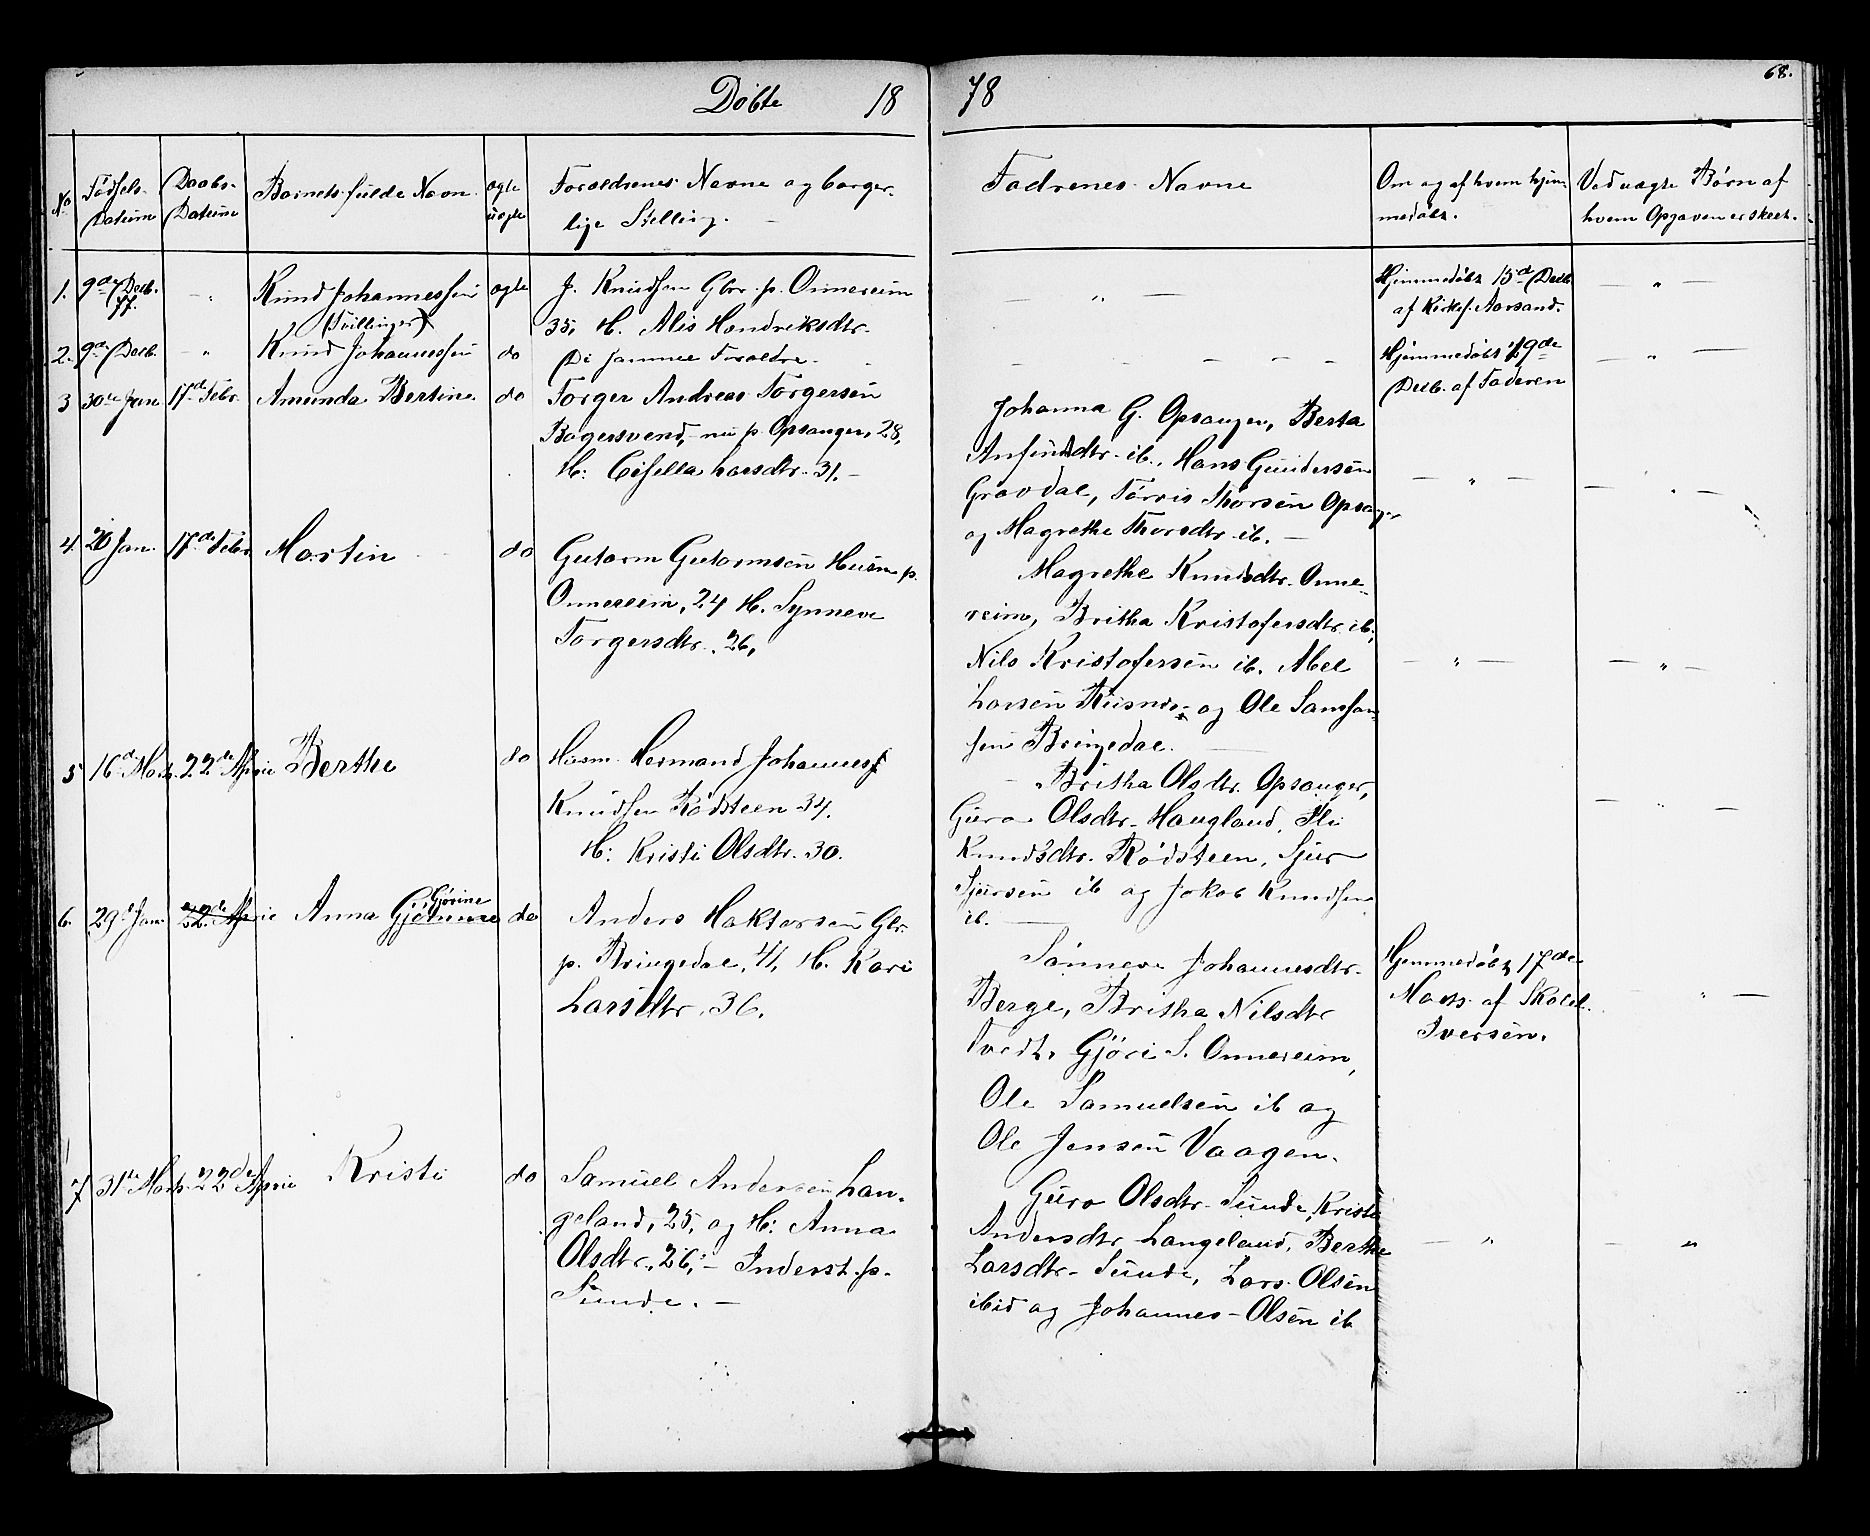 68.
Døbte 18 78
No
Fødsels-
Datum
Daabs-
Datum
Barnets fulde Navn
ægte
uægte
Forældrenes Navne og borger-
lige Stilling.
Fadrenes Navne
Om og af hvem hjem-
medøbt.
Ved uægte Børn af
hvem Opgaven er skeet.
1. 9de Decb. 77. Knud Johannessen ægte
(Tvillinger)
J. Knudsen Gbr. p. Onnereim
35, H. Alis Hendriksdtr.
Hjemmedøbt 15d Decb
af Kirkes. Aarsand.
2. 9de Decb. Knud Johannessen do
De samme Forældre.
Hjemmedøbt 19de
Decb. af Faderen
3 30te Jan 17d Febr. Amunda Bertine do
Torger Andreas Torgersen
Bagersvend, nu p. Opsanger, 28,
H: Larsdtr. 31.
Johanna G. Opsanger, Berta
Anfindtdtr. ib., Hans Gundersen
Gravdal, Thorsen Opsang.
og Magrethe Thorsdtr. ib.
4. 20 Jan. 17de Febr Martin do
Gutorm Gutormsen Husm p.
Onnereim, 24 H. Synneve
Torgersdtr. 26,
Magrethe Knudsdtr. Onne-
reim, Britha Kristofersdtr. ib.,
Nils Kristofersen ib. Abel
Larsen og Ole Samson
sen Bringedal.
5 16d Marts. 22de April Berthe do
Husm. Hermand Johannes
Knudsen Rødsteen 34.
H: Kristi Olsdtr. 30.
Britha Olsdtr. Opsanger,
Guro Olsdtr. Haugland, Eli
Knudsdtr. Rødsteen, Sjur
Sjursen ib og Jakob Knudsen
ib.
6. 29d Jan. 22de April Anna Gjørine do
Anders Haktorsen Gbr.
p. Bringedal, 41, H. Kari
Larsdtr. 36.
Sønneve Johannesdtr.
Berge, Britha Nilsdtr
Tvedt, Gjøri S. Onnereim,
Ole Samuelsen ib og
Ole Jensen Vaagen.
Hjemmedøbt 17de
Marts af Skolel.
Iversen.
7 31te Marts. 22de April Kristi do
Samuel Andersen Lan-
geland, 25, og H: Anna
Olsdtr., 26, – Inderst p.
Sunde. –
Guro Olsdtr. Sunde, Kristi
Andersdtr Langeland, Berthe
Larsdtr. Sunde, Lars Olsen
ibid og Johannes Olsen ib